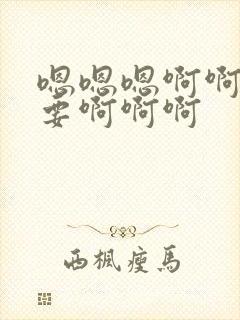 嗯嗯嗯啊啊
要啊啊啊
西楓瘦馬